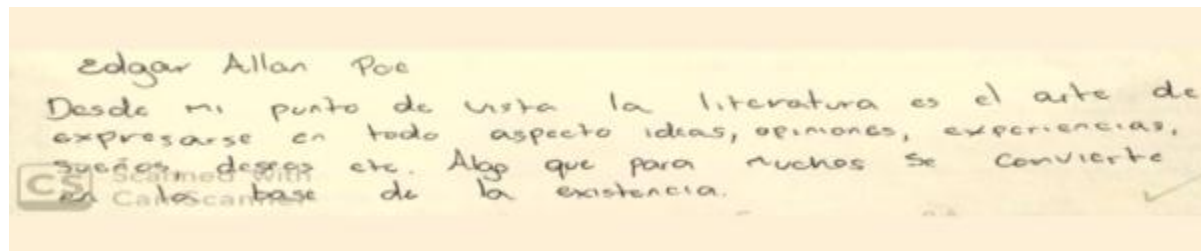 Edgar Allan Poe
Desde mi punto de vista la literatura es el arte de
expresarse en todo aspecto ideas, opiniones, experiencias,
sueños, deseos etc. Algo que para muchos se convierte
en la base de la existencia.
CS Scanned with
CamScanner